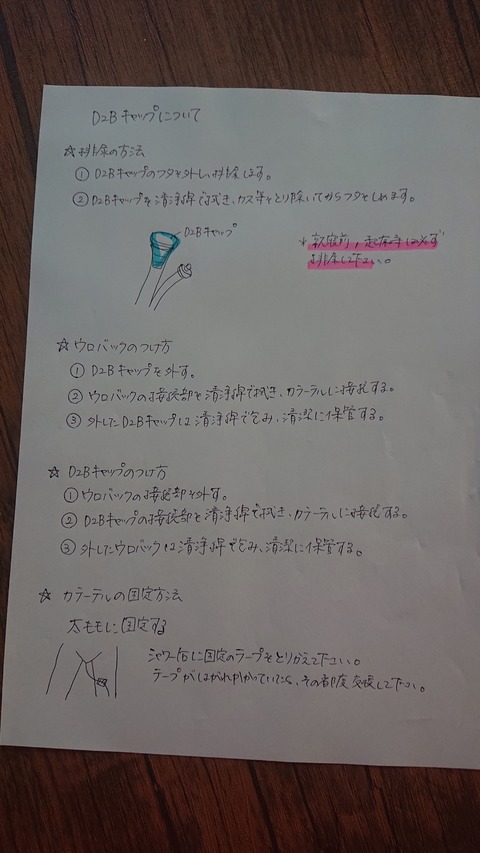 D2Bキャップについて
☆排尿の方法
① D2Bキャップのフタを外し、排尿します。
② D2Bキャップを清浄綿で拭き、カス等をとり除いてからフタをしめます。
D2Bキャップ
* 就寝前、起床時は必ず
排尿して下さい。
☆ウロバックのつけ方
① D2Bキャップを外す。
② ウロバックの接続部を清浄綿で拭き、カテーテルに接続する。
③ 外したD2Bキャップは清浄綿で包み、清潔に保管する。
☆ D2Bキャップのつけ方
① ウロバックの接続部を外す。
② D2Bキャップの接続部を清浄綿で拭き、カテーテルに接続する。
③ 外したウロバックは清浄綿で包み、清潔に保管する。
☆ カテーテルの固定方法
太ももに固定する
シャワー后に固定のテープをとりかえて下さい。
テープがはがれかかっていたら、その都度交換して下さい。